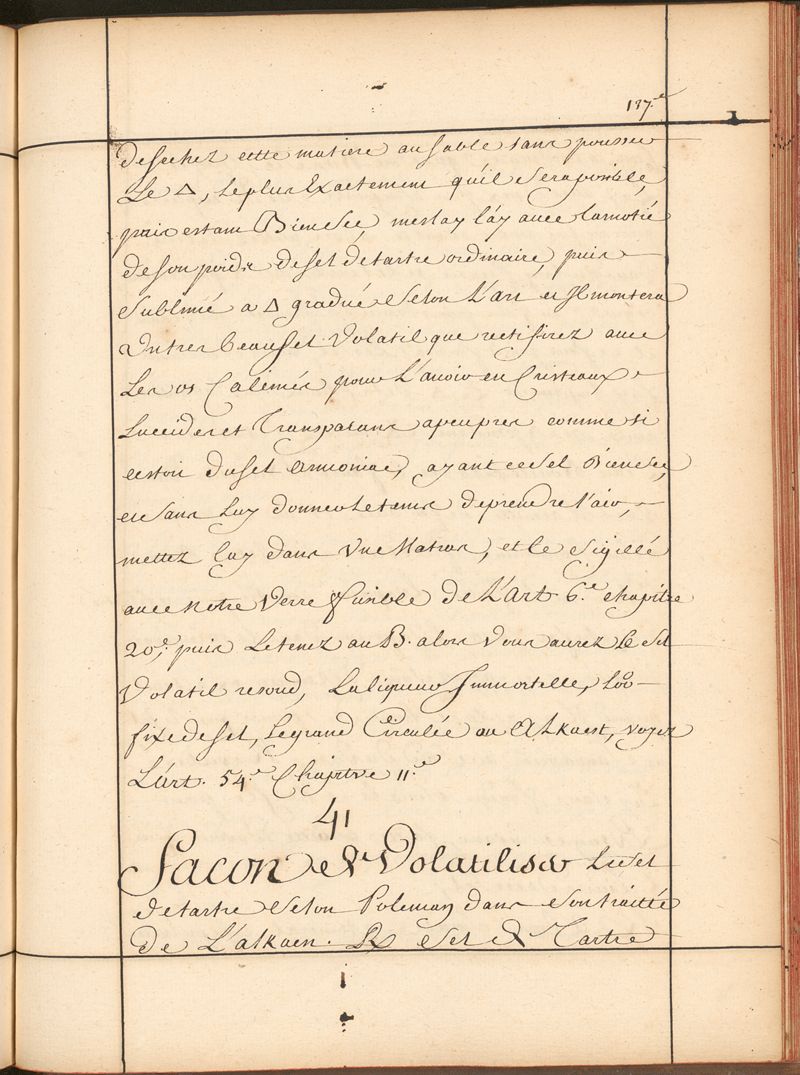 137.e
desechez cette matiere au sable sans pousser
Le △, Le plus Exactement qu'il sera posible,
puis estant Bien sec, meslay lay avec La motié
de son poids de sel de tartre ordinaire, puis
sublimé a △ gradué selon L'art et Il montera
un tres beau sel Volatil que rectifirez avec
Les os Calcinés pour L'avoir en Cristeaux
Luccides et Transparans a peu pres comme si
cestoit du sel Armoniac, ayant ce sel Bien sec,
et sans Luy donner Le tems de prendre l'air,
mettez lay dans Vne Matras, et le sigillé
avec notre Verre fusible de L'Art. 6.e chapitre
20.e, puis Le tenez au B. alors Vous aurez Le sel
Volatil resoud, La liqueur Immortelle,
fixe de sel, Le grand Circulée ou ALkaest, voyez
L'art. 54.e Chapitre 11.e
41
Facon de Volatiliser Le sel
de tartre selon Poleman dans son traitée
de L'alkaen. ℞ Sel de Tartre